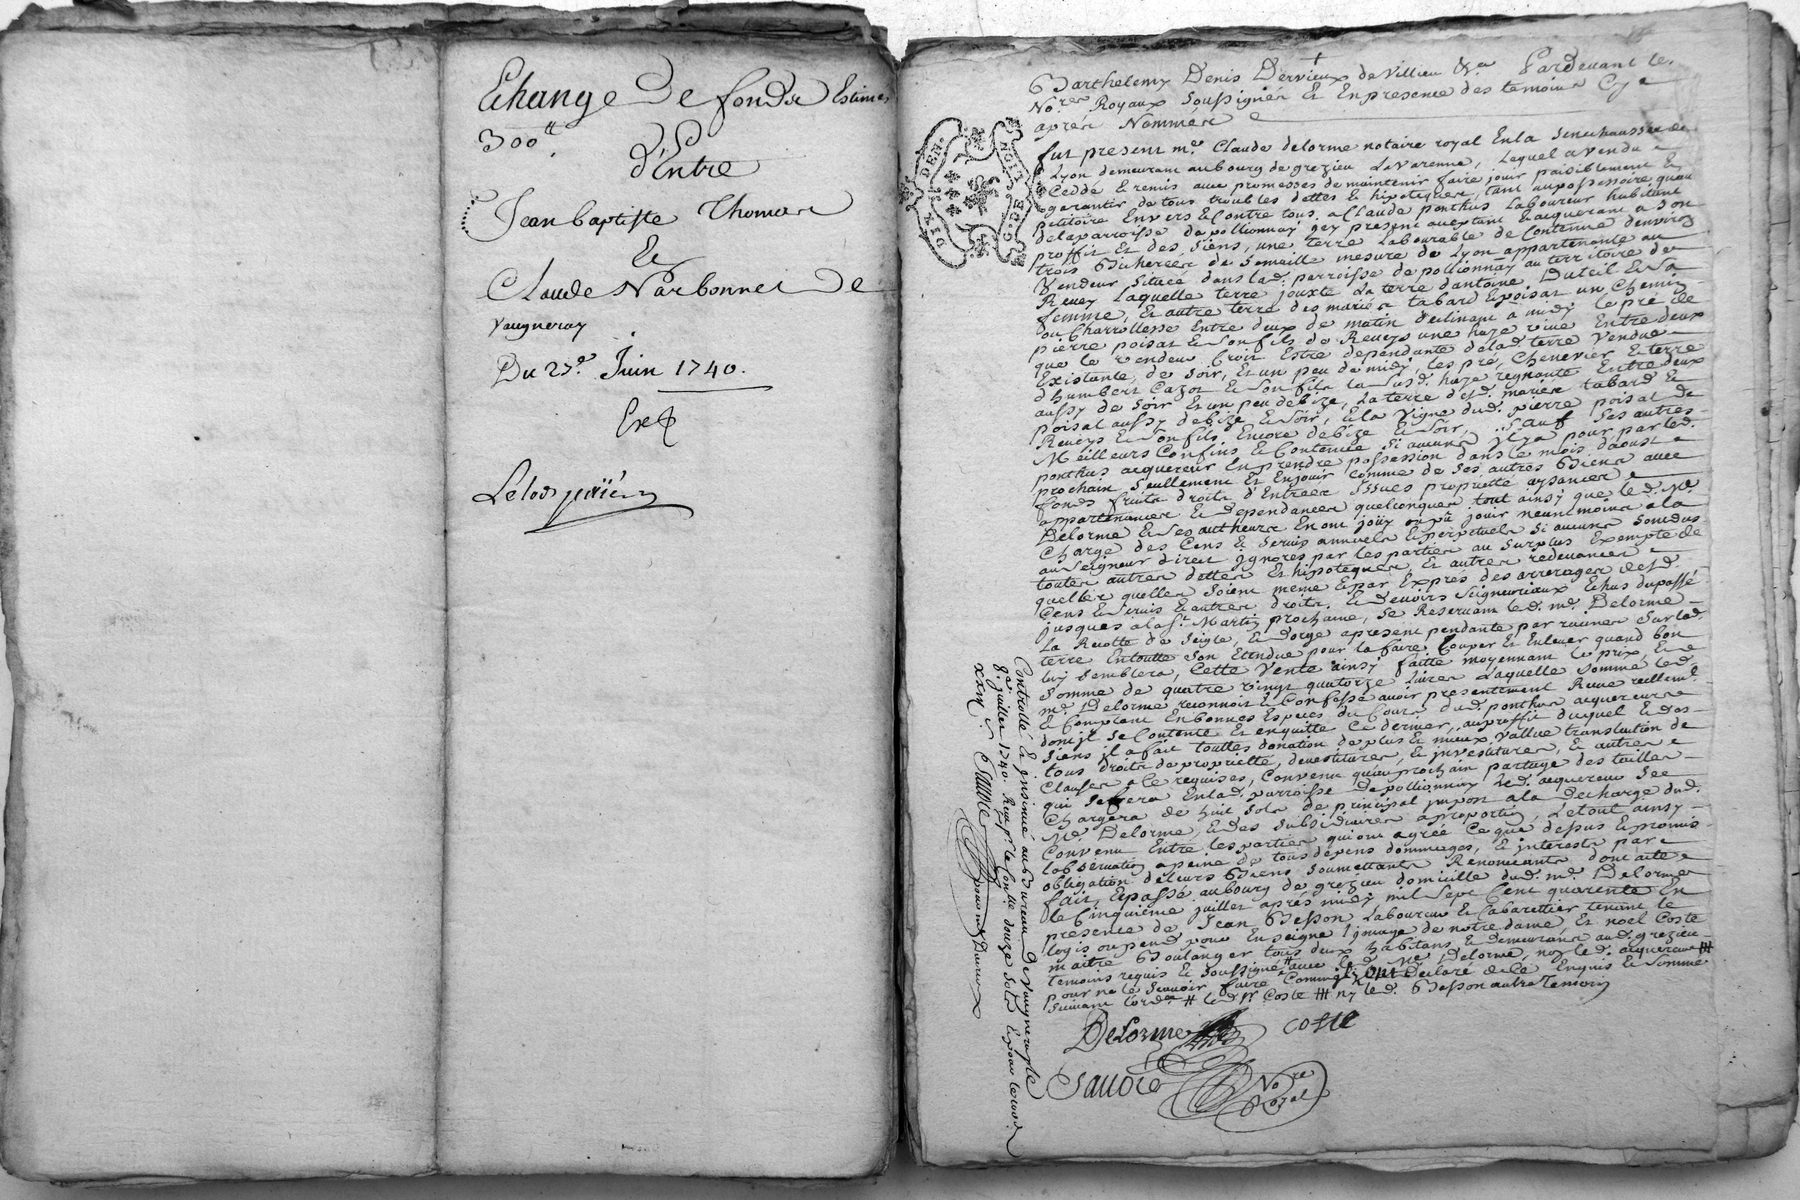 Echange De fonds Estimes
300tt
d'Entre
Jean baptiste Thomas
Et
Claude Narbonnet De
Vaugneray
Du 27e Juin 1740.
Exp
Barthelemy Denis Dervieux de Villieu &a Pardevant les
Nores Royaux Soussignés Et En presence des temoins Cy
aprés Nommés
fut present me Claude delorme notaire royal En la Senechaussée de
Lyon demeurant au bourg de grezieu La Varenne, Lequel a Vendu
Cedde & remis avec promesses de maintenir faire jouir paisiblement &
garantir de tous troubles dettes & hipoteques, tant au possessoire qu'au
petitoire Envers & Contre tous, a Claude ponthus Laboureur habitant
de la parroisse de pollionnay icy present acceptant & acquerant a Son
proffit Et des Siens, une terre Labourable de Contenue d'environ
trois Bicherées de Semaille mesure de Lyon appartenante au
Vendeur Située dans lad. parroisse de pollionnay au territoire de
Revey Laquelle terre jouxte La terre d'antoine Duteil & Sa
femme, Et autre terre des mariés tabard & poisat un Chemin
ou Charrollesse Entre deux de matin declinant a midy le pré de
pierre poisat & Son fils de Reveys une haye vive Entre deux
que le vendeur Croit Estre dependante de lad. terre Vendue
Existante, de Soir, Et un peu de midy, les pré, Chenevier & terre
d'humbert Cazot & Son fils la Susd. haye regnante Entre deux
aussy de Soir Et un peu de bize, La terre desd. mariés tabard &
poisat aussy de bize & Soir, & la Vigne dud. pierre poisat de
Reveys & Son fils Encore de bize & Soir, Sauf Ses autres
Meilleurs Confins & Contenue Si aucuns il y a pour par led.
ponthus acquereur En prendre possession dans le mois d'aoust
prochain Seullement Et En jouir Comme de Ses autres Biens avec
fonds fruits droits d'Entrées Issues proprietté aysances
appartenances & dependances quelconques tout ainsy que led. Me
Delorme & Ses autheurs En ont joüy ou pû jouir neanmoins a la
Charge des Cens & Servis annuels & perpetuels Si aucuns Sont dus
au Seigneur direct ignorés par les parties au Surplus Exempte de
toutes autres dettes Et hipoteques, Et autres redevances
quelles quelles Soient meme & par Exprés des arrerages desd.
Cens & Servis & autres droits & devoirs Seigneuriaux Echus du passé
jusques a la St. Martin prochaine, Se Reservant led. me. Delorme
La Recolte de Seigle, & d'orge a present pendante par racines Sur lad.
terre En toutte Son Etendue pour la faire Couper Et Enlever quand bon
luy Semblera, Cette Vente ainsy faitte moyennant le prix &
Somme de quatre vingt quatorze Livres Laquelle Somme led.
me. Delorme reconnoit & Confesse avoir presentement Reçue reellemt.
& Comptant En bonnes Especes du Cours dud. ponthus acquereur
dont il Se Contente Et En quitte Ce dernier, au proffit duquel & des
Siens il a fait touttes donation de plus & mieux Vallue translation de
tous droits de proprietté, devestitures, & investitures, & autres
Clauses a ce requises, Convenu qu'au prochain partage des tailles
qui Se fera En lad. parroisse de pollionnay led. acquereur Se
Chargera de huit Sols de principal jupon a la decharge dud.
Me. Delorme & des Subsidiaires a proportion, Le tout ainsy
Convenu Entre les parties qui ont agrée Ce que dessus & promis
l'observation a peine de tous depens dommages, & interests par
obligation de leurs Biens Soumettants Renonceants dont acte
fait & passé au bourg de grezieu domicille dud. me. Delorme
le Cinquiéme juillet aprés midy mil Sept Cent quarente En
presence de Jean Besson Laboureur & Cabarettier tenant le
logis ou pend pour Enseigne l'image de notre dame, Et noel Coste
maitre Boulanger tous deux habitans, & demeurans aud. grezieu
temoins requis & Soussignés avec led. Me. Delorme, non led. acquereur
pour ne le Sçavoir faire Comme il a Declaré de Ce Enquis & Sommé
Suivant l'orde. # led. Sr Coste ### ny led. Besson autre temoin
Delorme
Coste
Savoie
Nore
Royal
Controllé & insinué au Bureau de Vaugneray le
8e juillet 1740. Reçu pr. le Conlle douze Sols
DE LION
G. DE